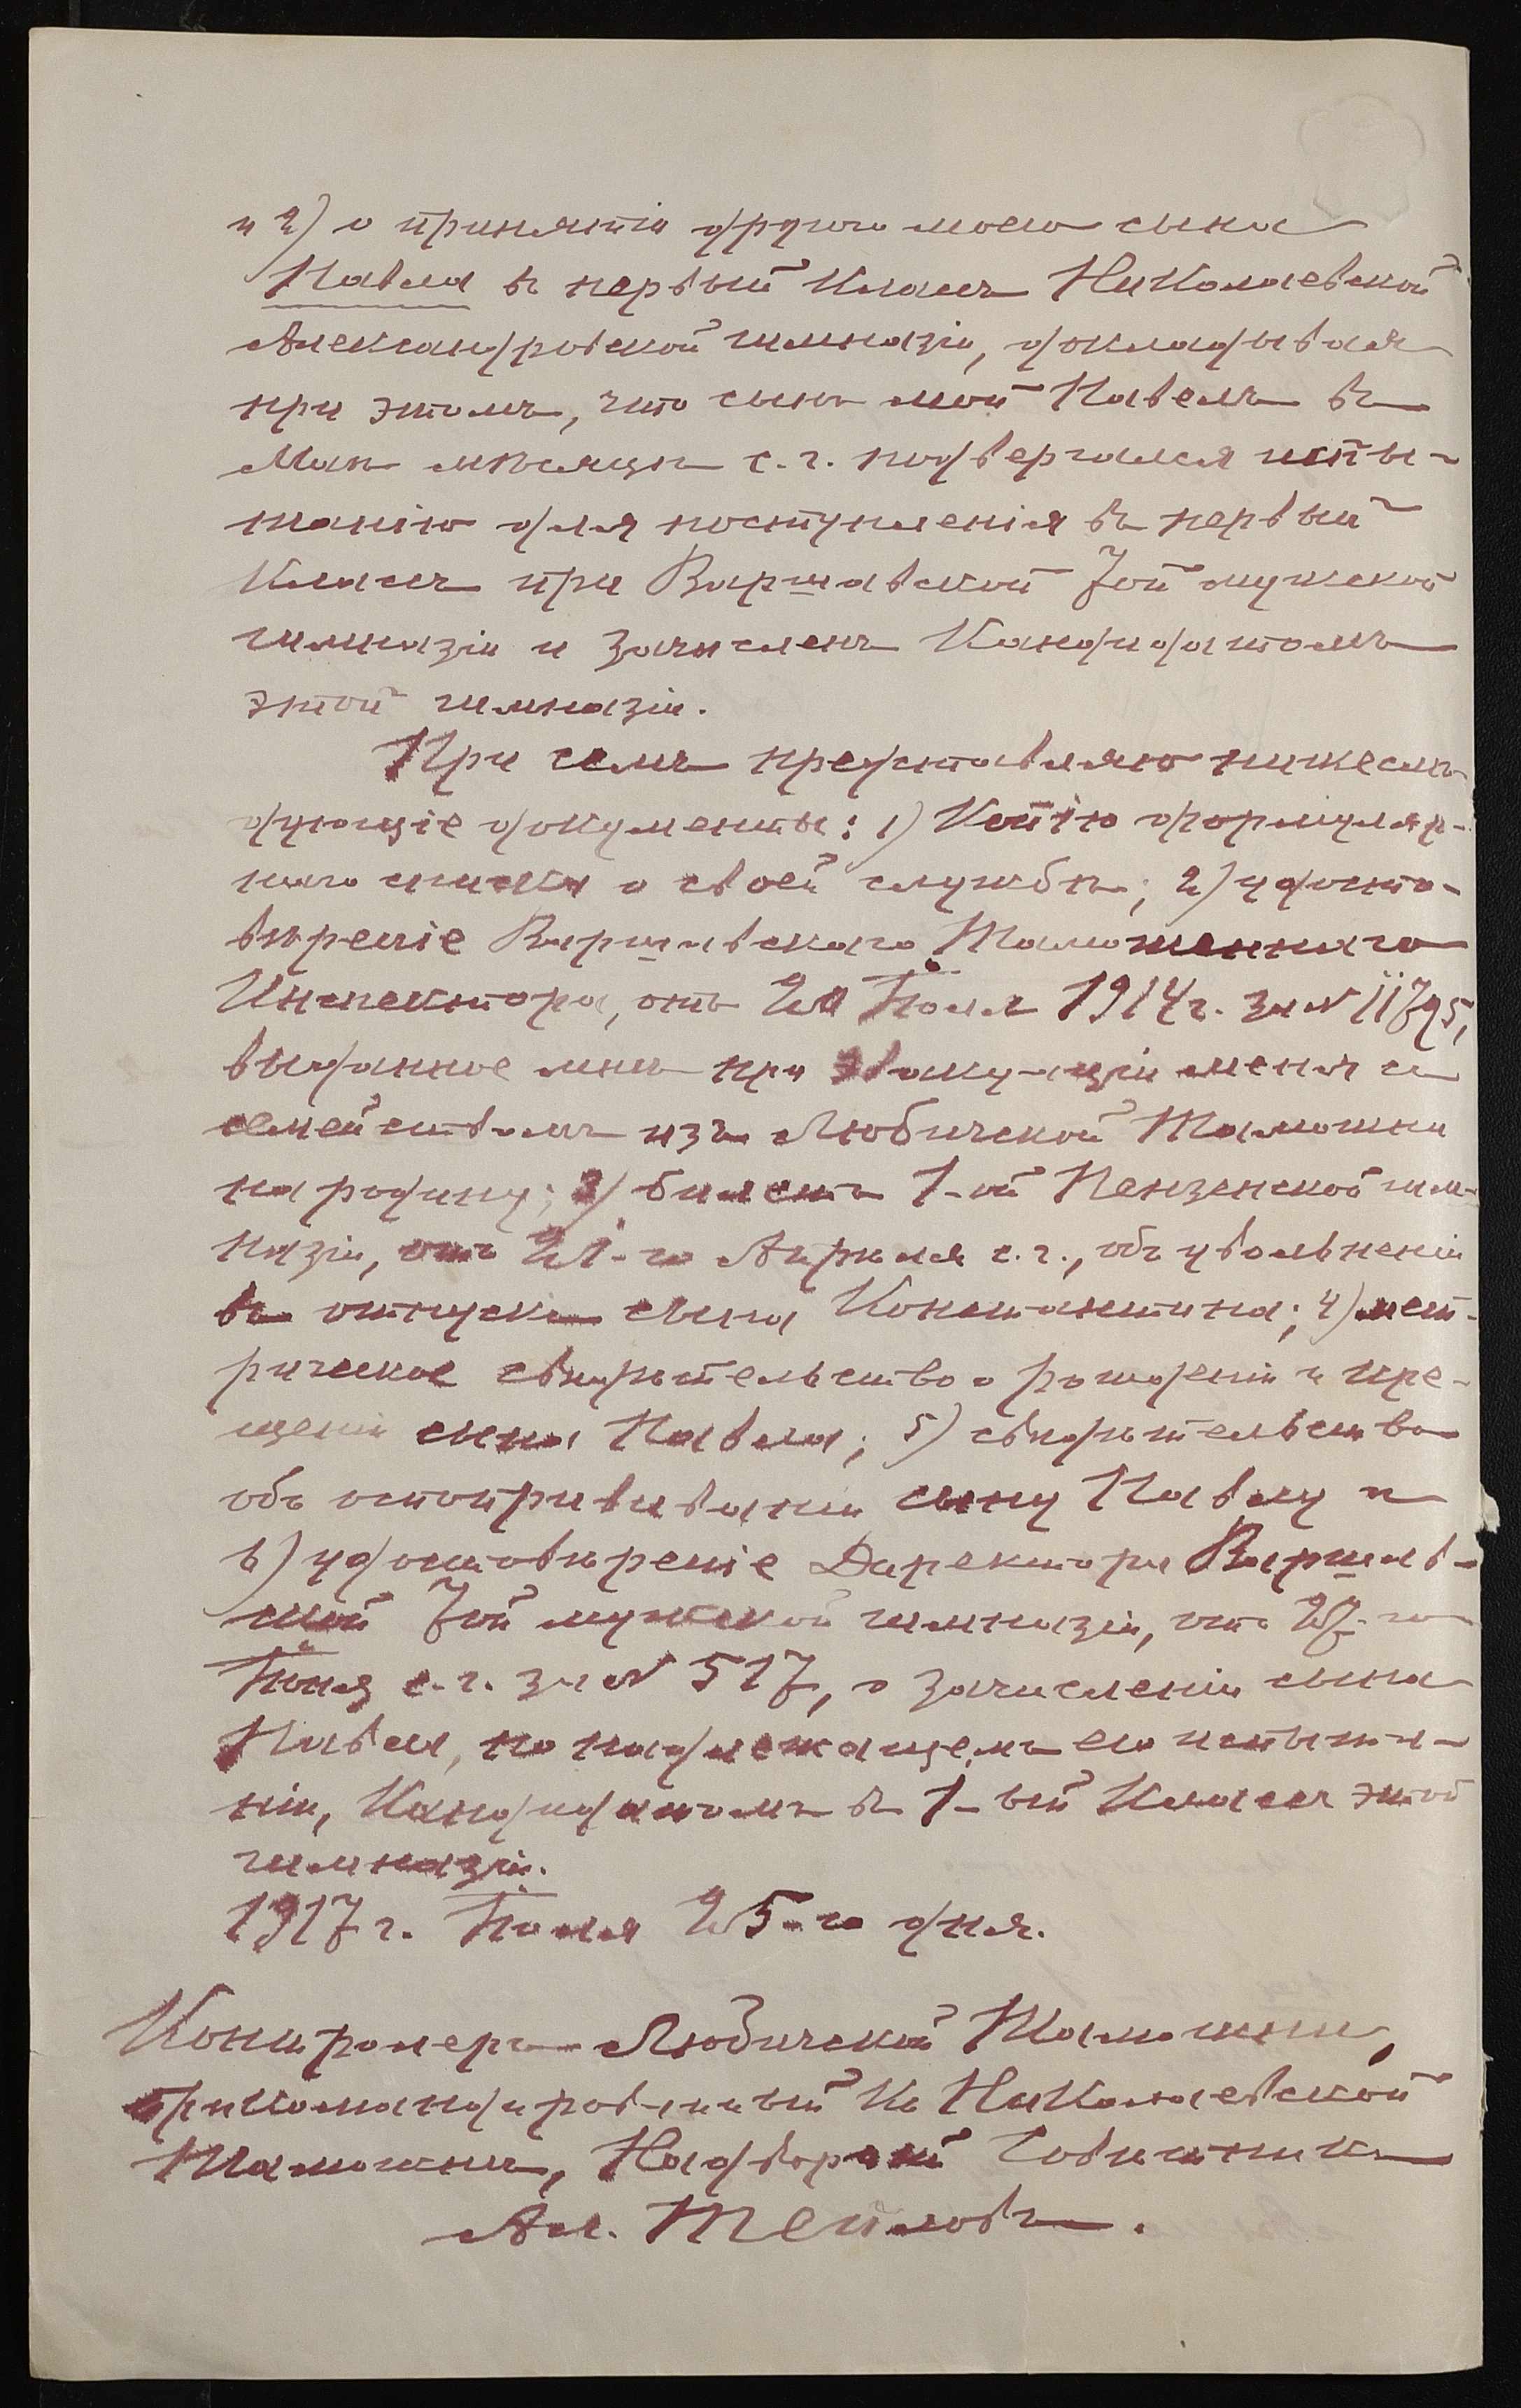 и 2) о принятіи другого моего сына
Павла въ первый классъ Николаевской
Александровской гимназіи, докладывая
при этомъ, что сынъ мой Павелъ въ
Маѣ мѣсяцѣ с. г. подвергался испы-
танію для поступленія въ первый
классъ при Варшавской 7ой мужской
гимназіи и зачисленъ кандидатомъ
этой гимназіи.
При семъ представляю нижеслѣ-
дующіе документы: 1) копію формуляр-
наго списка о своей службѣ; 2) удосто-
вѣреніе Варшавскаго Таможеннаго
Инспектора, отъ Іюля 1914 г. за № 11795,
выданное мнѣ при эвакуаціи меня съ
семействомъ изъ Любичской Таможни
на родину; 3) билетъ 1-ой Пензенской гим-
назіи, отъ 21-го Апрѣля с. г., объ увольненіи
въ отпускъ сына Константина; 4) мет-
рическое свидѣтельство о рожденіи и кре-
щеніи сына Павла; 5) свидѣтельство
объ оспопрививаніи сыну Павлу и
6) удостовѣреніе Директора Варшав-
ской 7ой мужской гимназіи, отъ 27-го
Іюня с. г. за № 517, о зачисленіи сына
Павла, по надлежащемъ его испыта-
ніи, кандидатомъ въ 1-ый классъ этой
гимназіи.
1917 г. Іюля 25-го дня.
Контролеръ Любичской Таможни,
прикомандированный къ Николаевской
Таможнѣ, Надворный Совѣтникъ
Ал. Тепловъ.